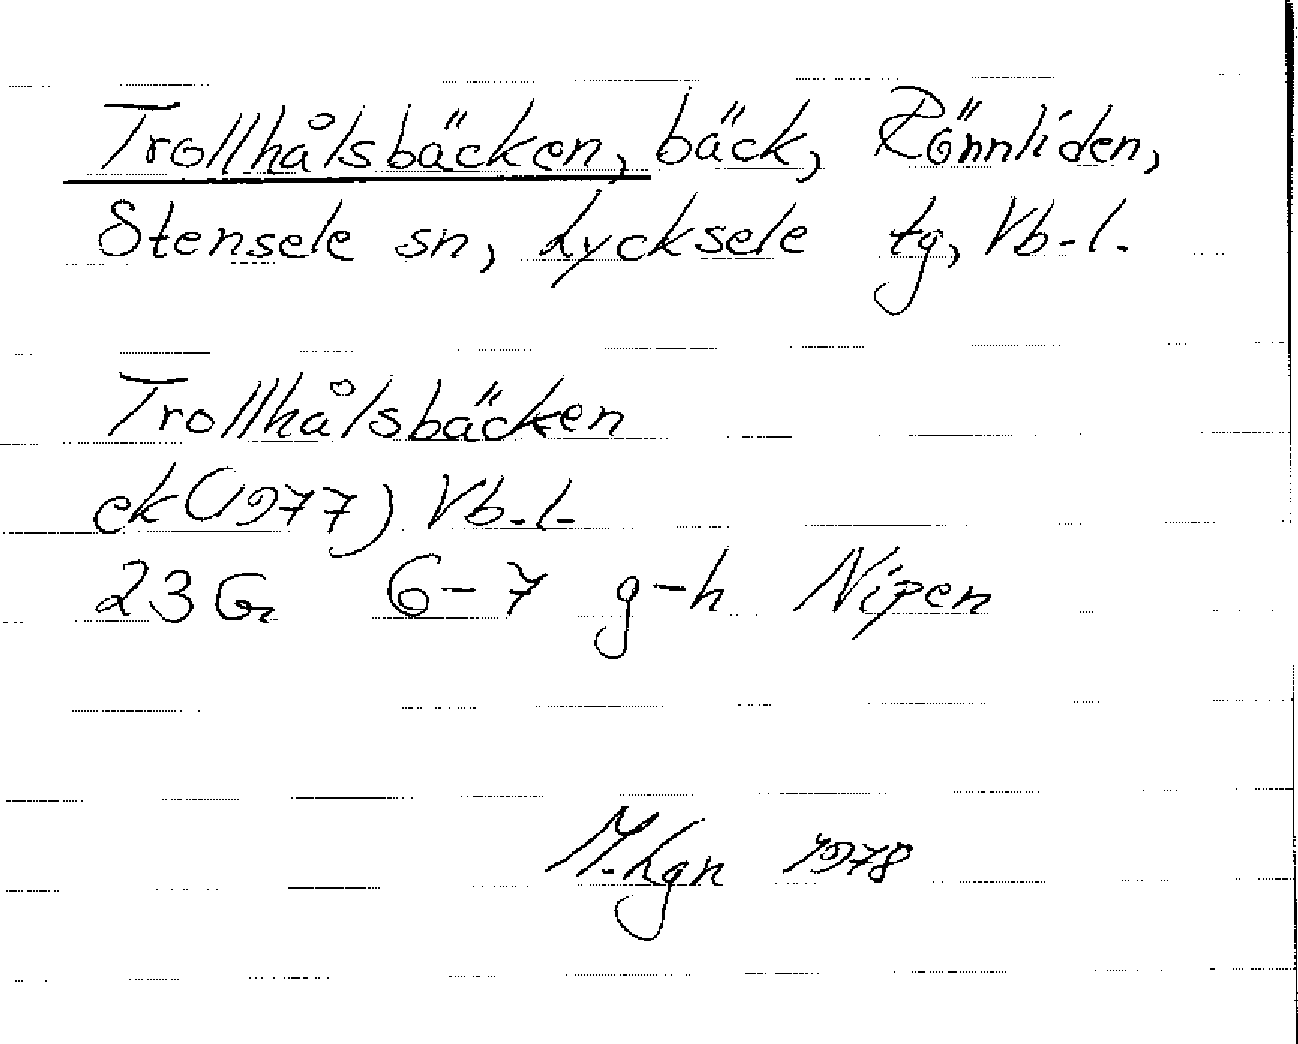 Trollhålsbäcken, bäck, Rönnliden,
Stensele sn, Lycksele tg, Vb-l.
Trollhålsbäcken
ek (1977) Vb-l.
23 G 6-7 g-h Nipen
M. Lgn 1978